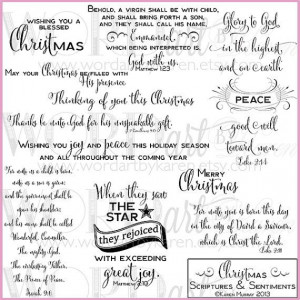 WISHING YOU A
BLESSED
Christmas
Behold, a virgin shall be with child,
and shall bring forth a son,
and they shall call his name,
Emmanuel,
which being interpreted is,
God with us.
Matthew 1:23
Glory to God
in the highest,
and on earth
PEACE
good will
toward men.
Luke 2:14
May your Christmas be filled with
His presence
Thinking of you this Christmas
Thanks be unto God for his unspeakable gift.
Wishing you joy and peace this holiday season
and all throughout the coming year
For unto us a child is born,
unto us a son is given:
and the government shall be
upon his shoulder:
and his name shall be called
Wonderful, Counsellor,
The mighty God,
the everlasting Father,
The Prince of Peace.
Isaiah 9:6
When they saw
THE
STAR
they rejoiced
WITH EXCEEDING
great joy.
Matthew 2:10
MERRY
Christmas
For unto you is born this day
in the city of David a Saviour,
which is Christ the Lord.
Luke 2:11
Christmas
Scriptures & Sentiments
©Karen Murray 2013